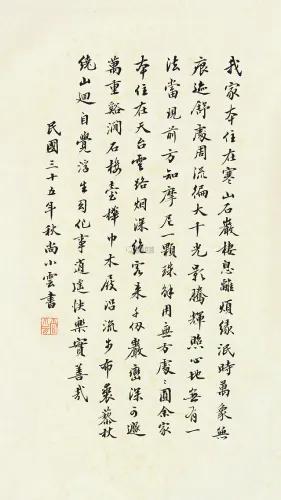 我家本住在寒山石巖棲息離煩緣泯時萬象無
痕迹舒處周流徧大千光影騰輝照心地無有一
法當現前方知摩尼一顆珠解用無方處々圓余家
本住在天台雲路烟深絕客來千仞巖巒深可遯
萬重谿澗石樓臺樺巾木屐沿流步布裘藜杖
繞山迴自覺浮生幻化事逍遙快樂實善哉
民國三十五年秋尚小雲書